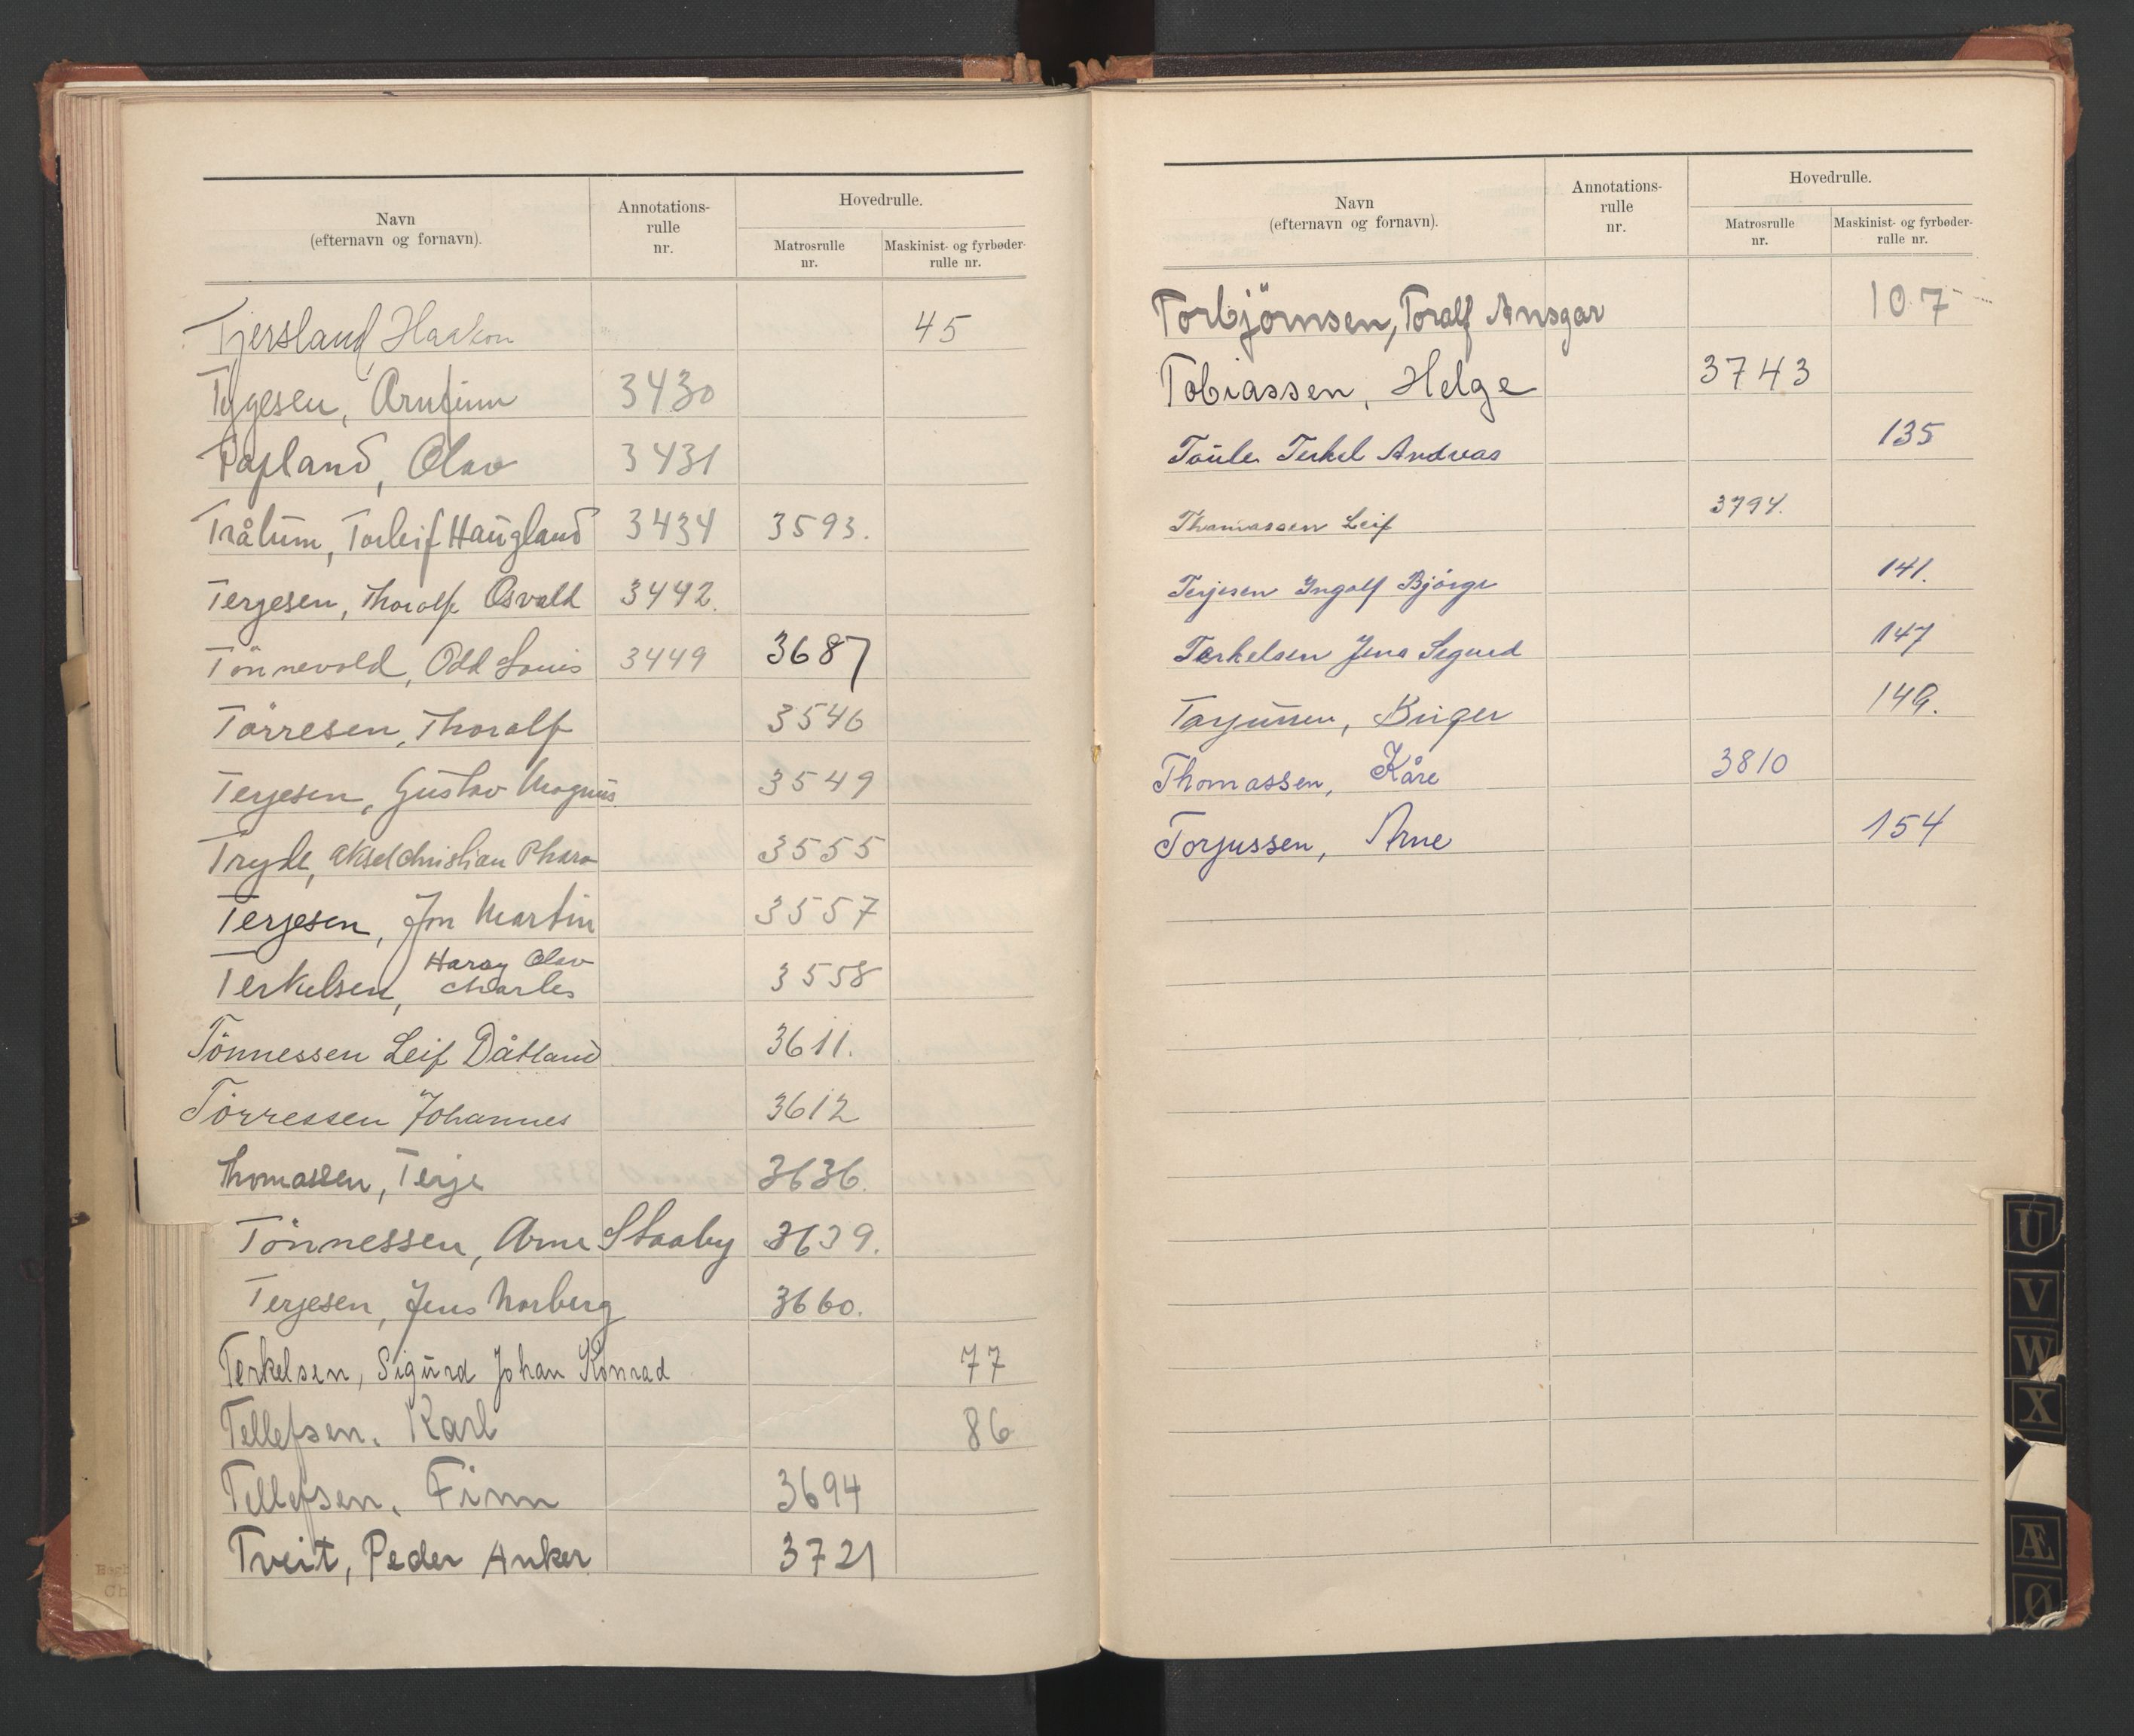 Navn
(efternavn og fornavn).
Annotations-
rulle
nr.
Hovedrulle.
Matrosrulle
nr.
Maskinist- og fyrbøder-
rulle nr.
Tjersland, Haakon 45
Tygesen, Arnfinn 3430
Olav 3431
Tråtum, Torleif Haugland 3434 3593.
Terjesen, Thoralf Osvald 3442.
Tönnevold, Odd Louis 3449 3687
Törresen, Thoralf 3546
Terjesen, Gustav Magnus 3549
Tryde, Aksel Christian Pharo 3555
Terjesen, Jon Martin 3557
Terkelsen, Harry Olav
Charles 3558
Tönnessen Leif Dåtland 3611.
Törressen Johannes 3612
Thomassen, Terje 3636.
Tönnessen, Arne Staaby 3639.
Terjesen, Jens Norberg 3660.
Terkelsen, Sigurd Johan Konrad 77
Tellefsen, Karl 86
Tellefsen, Finn 3694
Tveit, Peder Anker 3721
Navn
(efternavn og fornavn).
Annotations-
rulle
nr.
Hovedrulle.
Matrosrulle
nr.
Maskinist- og fyrbøder-
rulle nr.
Torbjörnsen, Toralf Ansgar 107
Tobiassen, Helge 3743
Terkel Andreas 135
Thomassen Leif 3794.
Terjesen Ingolf Bjørge 141.
Terkelsen Jens Sigurd 147
Birger 149.
Thomassen, Kåre 3810
Torjussen, Arne 154
U
V
W
X
Æ
Ø